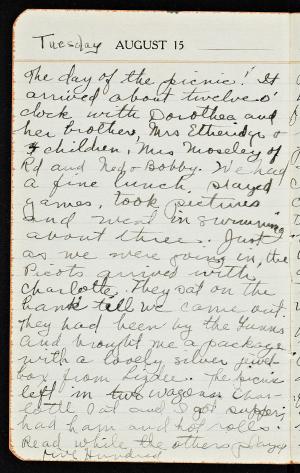 Tuesday AUGUST 15
The day of the picnic! It
arrived about twelve o'
clock with Dorothea and
her brother, Mrs Etheridge &
4 children, Mrs Moseley of
Rd and Ned & Bobby. We had
a fine lunch, played
games, took pictures
and went in swimming
about three. Just
as we were going in, the
Picots arrived with
Charlotte. They sat on the
bank till we came out.
They had been by the Gunns
and brought me a package
with a lovely silver jewel
box from Lizzie. The picnic
left in two wagons. Char-
lotte, Cat and I got supper,
had ham and hot rolls.
Read while the others played
Five Hundred